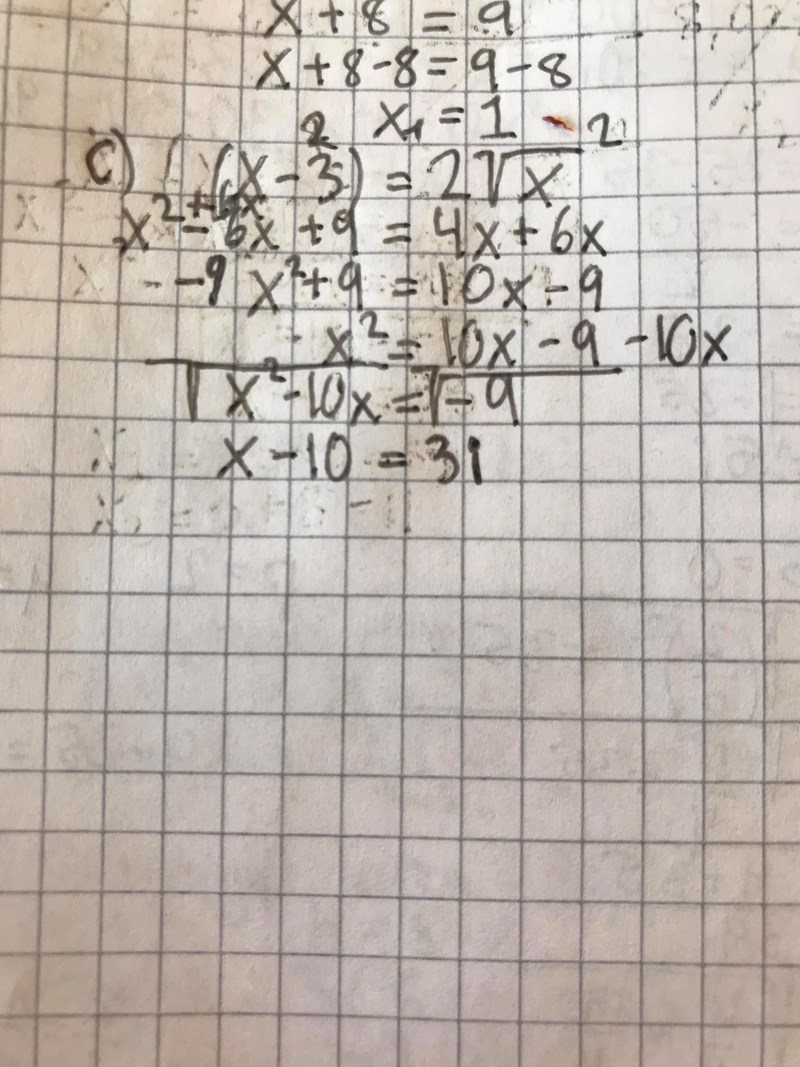 x + 8 = 9
x + 8 - 8 = 9 - 8
x₁ = 1
c) (x - 3)² = 2√x ²
x² - 6x + 9 = 4x + 6x
+6x
-9 x² + 9 = 10x - 9
x² = 10x - 9 - 10x
√x² - 10x = √-9
x - 10 = 3i